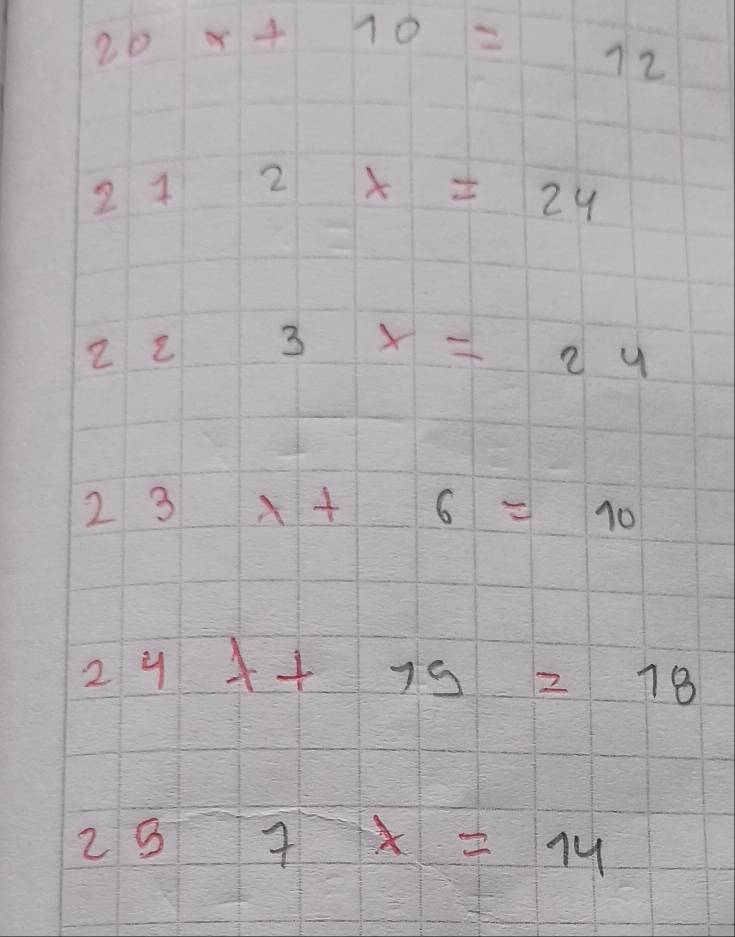 20 x + 10 = 12
21 2 x = 24
22 3 x = 24
23 x + 6 = 10
24 x + 15 = 18
25 7 x = 14